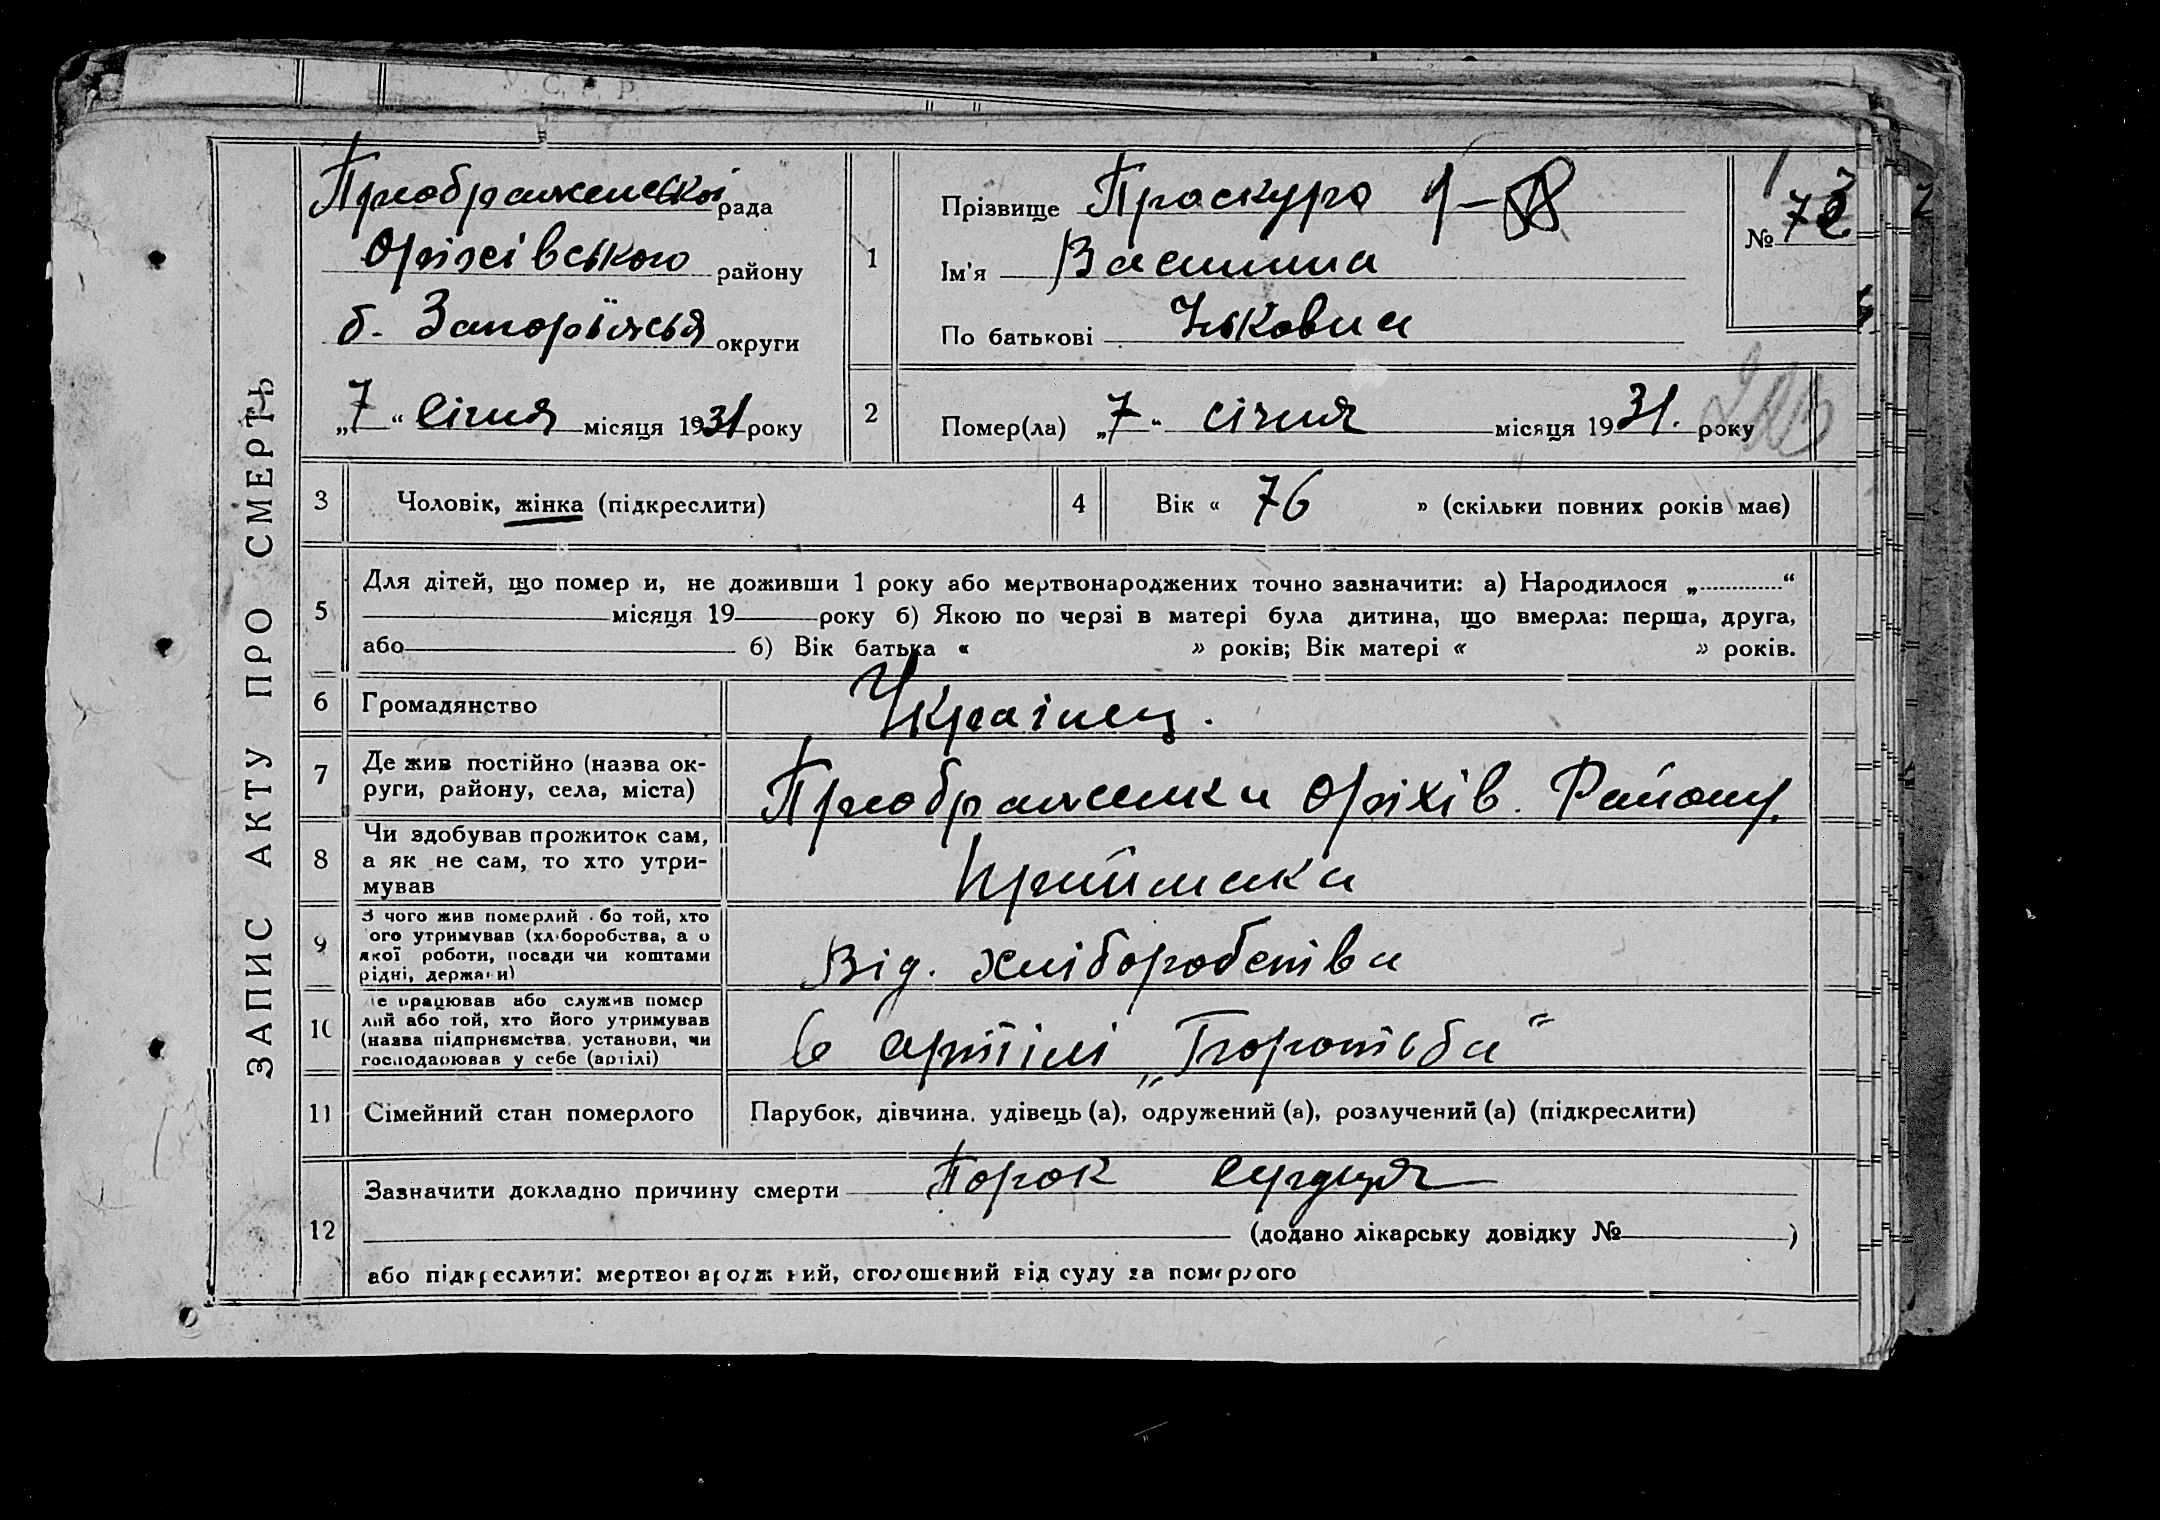 У. С. Р. Р.
ЗАПИС АКТУ ПРО СМЕРТЬ
Преображенської рада
Оріхівського району
б. Запоріжжя округи
„7“ січня місяця 1931 року
1
Прізвище Проскура 1-
Ім'я Василина
По батькові
№ 73
2
Помер(ла) „7“ січня місяця 1931. року
3 Чоловік, жінка (підкреслити)
4 Вік « 76 » (скільки повних років має)
5
Для дітей, що помер и, не доживши 1 року або мертвонароджених точно зазначити: а) Народилося „ “
місяця 19 року б) Якою по черзі в матері була дитина, що вмерла: перша, друга,
або б) Вік батька « » років; Вік матері « » років.
6 Громадянство Українец.
7
Де жив постійно (назва ок-
руги, району, села, міста)
Преображенка Оріхів. Району.
8
Чи здобував прожиток сам,
а як не сам, то хто утри-
мував
9
З чого жив померлий бо той, хто
ого утримував (хл боробства, а о
якої роботи, посади чи коштами
рідні, держа и)
Від. хліборобства
10
е працював або служив помер
лий або той, хто його утримував
(назва підприємства, установи, чи
господарював у себе (артілі)
в артілі „ “
11 Сімейний стан померлого
Парубок, дівчина, удівець (а), одружений (а), розлучений (а) (підкреслити)
12
Зазначити докладно причину смерти Порок сердця
(додано лікарську довідку № )
або підкреслити: мертвонароджений, оголошений від суду за померлого